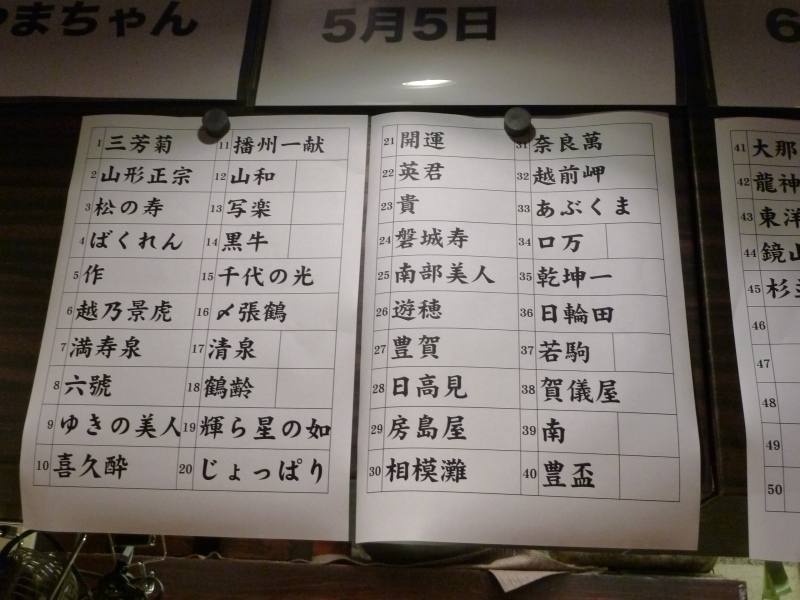 やまちゃん
5月5日
6
1 三芳菊
2 山形正宗
3 松の寿
4 ばくれん
5 作
6 越乃景虎
7 満寿泉
8 六號
9 ゆきの美人
10 喜久酔
11 播州一献
12 山和
13 写楽
14 黒牛
15 千代の光
16 〆張鶴
17 清泉
18 鶴齢
19 輝ら星の如
20 じょっぱり
21 開運
22 英君
23 貴
24 磐城寿
25 南部美人
26 遊穂
27 豊賀
28 日高見
29 房島屋
30 相模灘
31 奈良萬
32 越前岬
33 あぶくま
34 口万
35 乾坤一
36 日輪田
37 若駒
38 賀儀屋
39 南
40 豊盃
41 大那
42 龍神
43 東洋
44 鏡山
45 杉
46
47
48
49
50